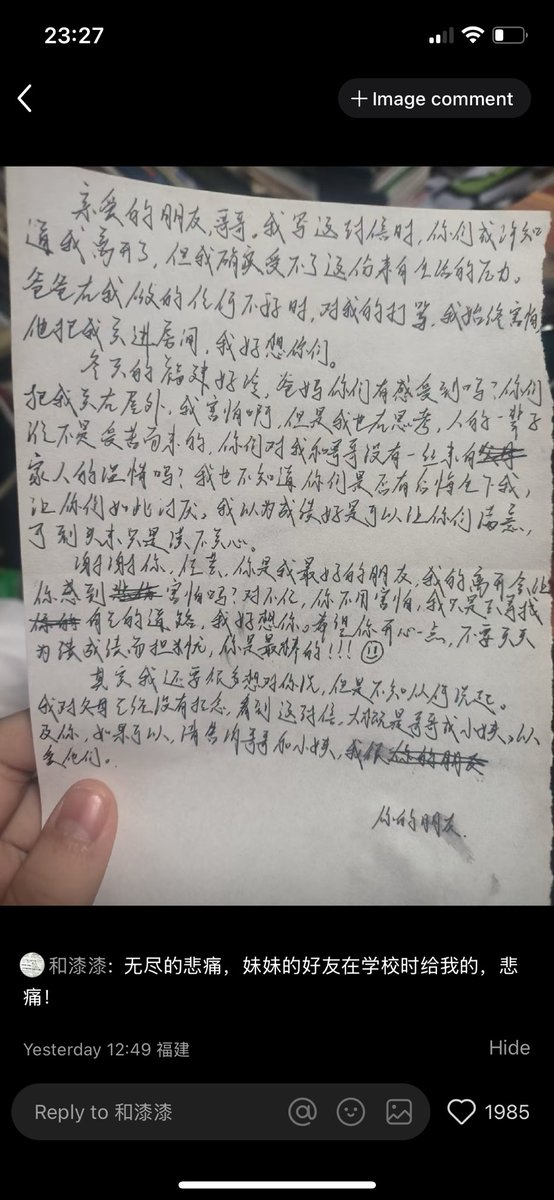 23:27
+ Image comment
亲爱的朋友,哥哥。我写这封信时,你们或许知
道我离开了,但我确实受不了这份来自生活的压力。
爸爸在我做的任何不好时,对我的打骂,我始终害怕,
他把我关进房间,我好想你们。
冬天的福建好冷,爸妈你们有感受到吗?你们
把我关在屋外,我害怕啊,但是我也在思考,人的一辈子
不是受苦而来的,你们对我和哥哥没有一丝来自
家人的温情吗?我也不知道你们是否有后悔生下我,
让你们如此讨厌,我以为成绩好是可以让你们满意,
可到头来只是漠不关心。
谢谢你,你是我最好的朋友,我的离开会让
你感到害怕吗?对不起,你不用害怕,我只是去寻找
自己的道路,我好想你。希望你开心一点,不要天天
为读成绩而担忧,你是最棒的!!!
其实我还要很多想对你说,但是不知从何说起。
我对父母已经没有挂念,看到这封信,大概是哥哥或小姨,以
及你,如果可以,请告诉哥哥和小姨,我很
爱他们。
你的朋友.
和漆漆:无尽的悲痛,妹妹的好友在学校时给我的,悲
痛!
Yesterday 12:49 福建
Hide
Reply to 和漆漆
1985